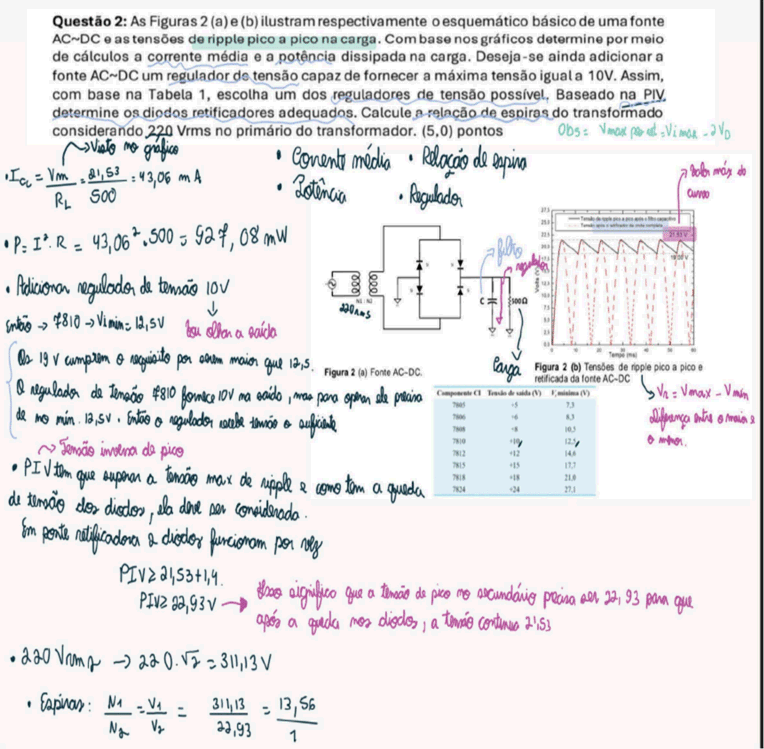 Questão 2: As Figuras 2 (a) e (b) ilustram respectivamente o esquemático básico de uma fonte
AC~DC e as tensões de ripple pico a pico na carga. Com base nos gráficos determine por meio
de cálculos a corrente média e a potência dissipada na carga. Deseja-se ainda adicionar a
fonte AC~DC um regulador de tensão capaz de fornecer a máxima tensão igual a 10V. Assim,
com base na Tabela 1, escolha um dos reguladores de tensão possível. Baseado na PIV
determine os diodos retificadores adequados. Calcule a relação de espiras do transformado
considerando 220 Vrms no primário do transformador. (5,0) pontos
Obs = Vmax pós ret = Vimax - 2VD
Visto no gráfico
• Icc = Vm / RL = 21,53 / 500 = 43,06 mA
• Corrente média • Relação de espira
• Potência • Regulador
• P = I². R = 43,06². 500 = 927,08 mW
• Adicionar regulador de tensão 10V
Então → 7810 → Vimin = 12,5V
Os 19 V cumprem o requisito por serem maior que 12,5.
O regulador de tensão 7810 fornece 10V na saída, mas para operar ele precisa
de no mín. 12,5V. Então o regulador recebe tensão o suficiente
filtro
regulador
N1 : N2
220rms
C
500Ω
Carga
Figura 2 (a) Fonte AC-DC.
Valor máx da
curva
Tensão de ripple pico a pico após o filtro capacitivo
Tensão após o retificador de onda completa
21.53 V
19.00 V
Tempo (ms)
Figura 2 (b) Tensões de ripple pico a pico e
retificada da fonte AC-DC
Vr = Vmax - Vmin
diferença entre o maior e
o menor.
Componente CI Tensão de saída (V) Vi mínima (V)
7805 +5 7,3
7806 +6 8,3
7808 +8 10,5
7810 +10 12,5
7812 +12 14,6
7815 +15 17,7
7818 +18 21,0
7824 +24 27,1
Tensão inversa de pico
• PIV tem que superar a tensão max de ripple e como tem a queda
de tensão dos diodos, ela deve ser considerada.
Em ponte retificadora 2 diodos funcionam por vez
PIV ≥ 21,53+1,4.
PIV ≥ 22,93V → Isso significa que a tensão de pico no secundário precisa ser 22,93 para que
após a queda nos diodos, a tensão continue 21,53
• 220 Vrms → 220.√2 = 311,13V
• Espiras: N1 / N2 = V1 / V2 = 311,13 / 22,93 = 13,56 / 1